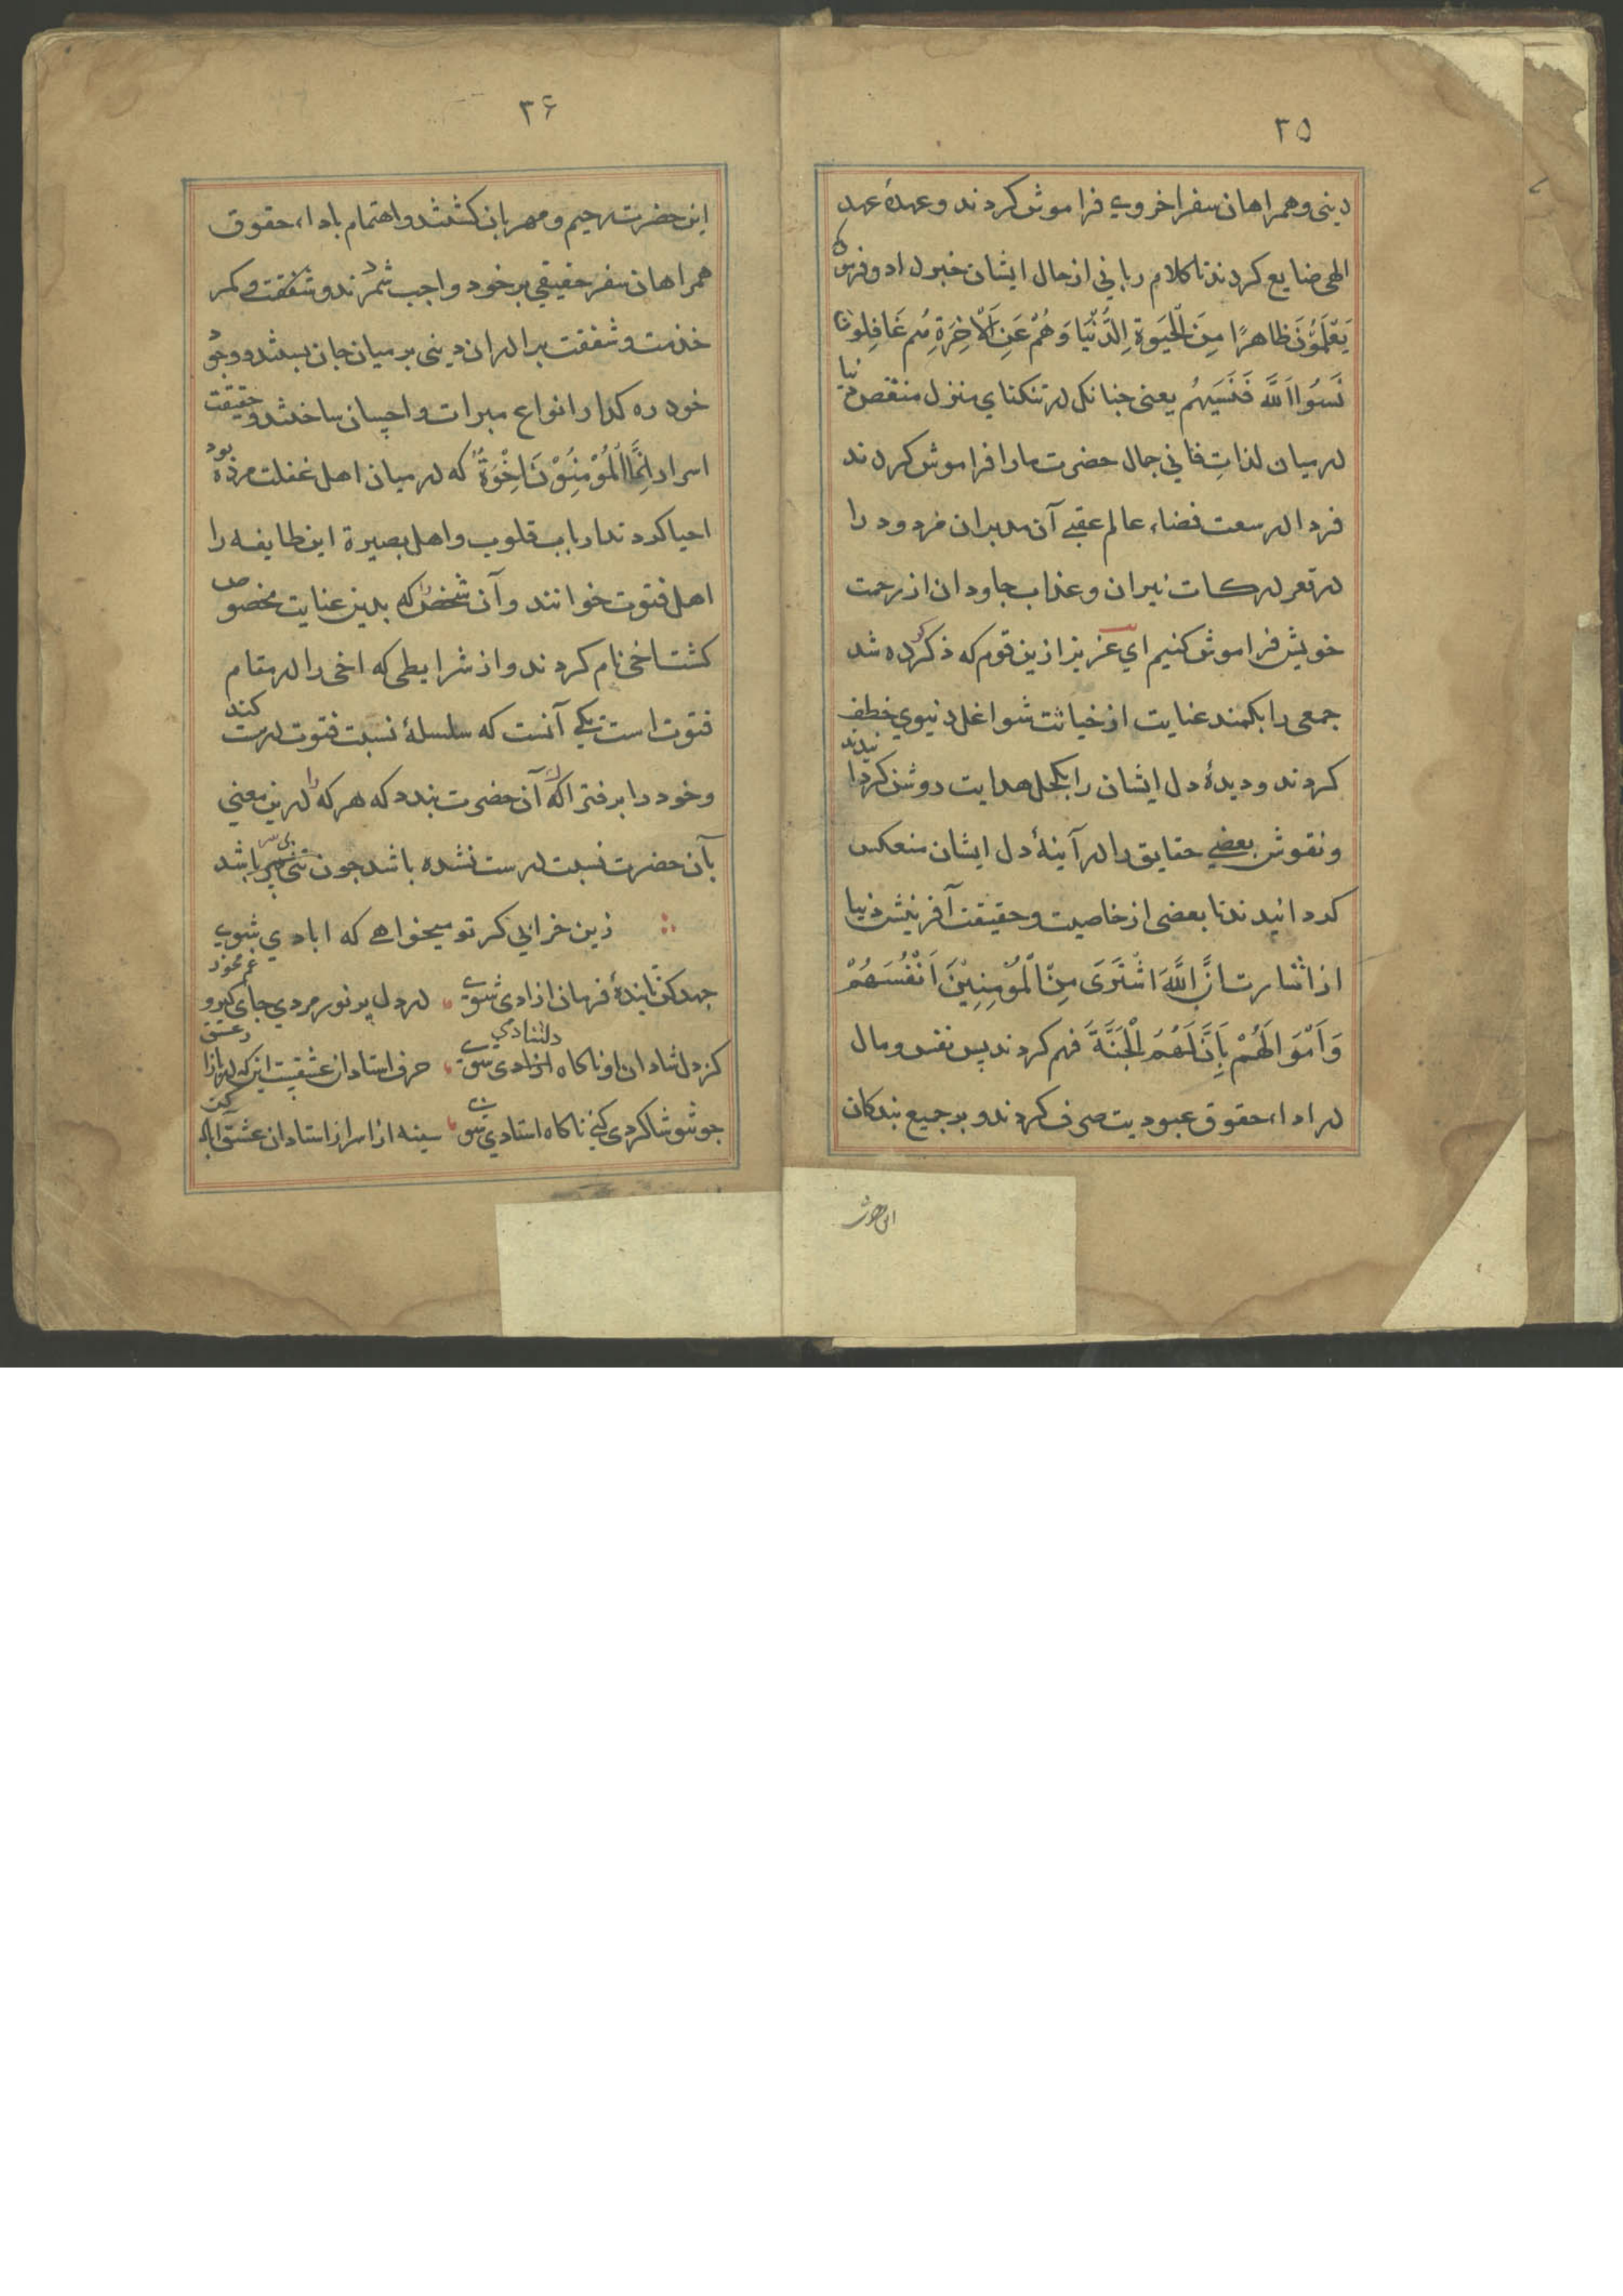 ۳۵
دینی و همراهان سفر اخروی فراموش کردند و عهدهٔ عهد
الهی ضایع کردند تا کلام ربانی از حال ایشان خبر داد و فرمود که
یَعْلَمُوْنَ ظاهرًا مِنَ الْحَیٰوةِ الدُّنْیَا وَهُمْ عَنِ الْاٰخِرَةِ هُم غَافِلُونَ
نَسُوا اللّٰهَ فَنَسِیَهُم یعنی جنانکه در تنکنای منزل منغص دنیا
در میان لذاتِ فانی جمال حضرت ما را فراموش کردند
فردا در سعت فضاء عالم عقبے آن مدبران مردود را
در قعر درکات نیران و عذاب جاودان از رحمت
خویش فراموش کنیم ای عزیز ازین قوم که ذکر کرده شد
جمعی را بکمند عنایت از خباثت شواغل دنیوی خطف
کردند و دیدهٔ دل ایشان را بکحل هدایت روشن کردانیدند
و نقوش بعضے حقایق را در آینهٔ دل ایشان منعکس
کردانیدند تا بعضی از خاصیت و حقیقت آفرینش دنیا
از اشارت اِنَّ اللّٰهَ اشْتَرَیٰ مِنَ الْمُؤْمِنِیْنَ اَنْفُسَهُمْ
وَاَمْوَالَهُمْ بِاَنَّ لَهُمُ الْجَنَّةَ فهم کردند پس نفس و مال
در اداء حقوق عبودیت صرف کردند و بر جمیع بندکان
این حضرت
۳۶
این حضرت رحیم و مهربان کشتند و اهتمام باداء حقوق
همراهان سفر حقیقی بر خود واجب شمردند و شفقت و کمر
خدمت و شفقت برادران دینی بر میان جان بستند و وجود
خود ره کذار انواع مبرات و احسان ساختند و حقیقت
اسرار اِنَّمَا الْمُؤْمِنُوْنَ اِخْوَةٌ که در میان اهل غفلت مرده بود
احیا کردند ارباب قلوب و اهل بصیرة این طایفه را
اهل فتوت خوانند و آن شخص را که بدین عنایت مخصوص
کشت اخی نام کردند و از شرایطی که اخی را در مقام
فتوت است یکے آنست که سلسلهٔ نسبت فتوت درست کند
و خود را بر فتراک آن حضرت بندد که هر که را درین معنی
بآن حضرت نسبت درست نشده باشد جون تنی بی سر باشد
زین خرابی کر تو میخواهے که ابادی شوی
جهد کن تا بندهٔ فرمان ازادی شوے در دل پر نور مردی جای کیر و غم مخور
کز دل شادان او ناکاه دلشادی شوے حرف استادان عشقست این که در بازار عشق
جو شو شاکردی کنے ناکاه استادی شوے سینه از اسرار استادان عشق آباد کن